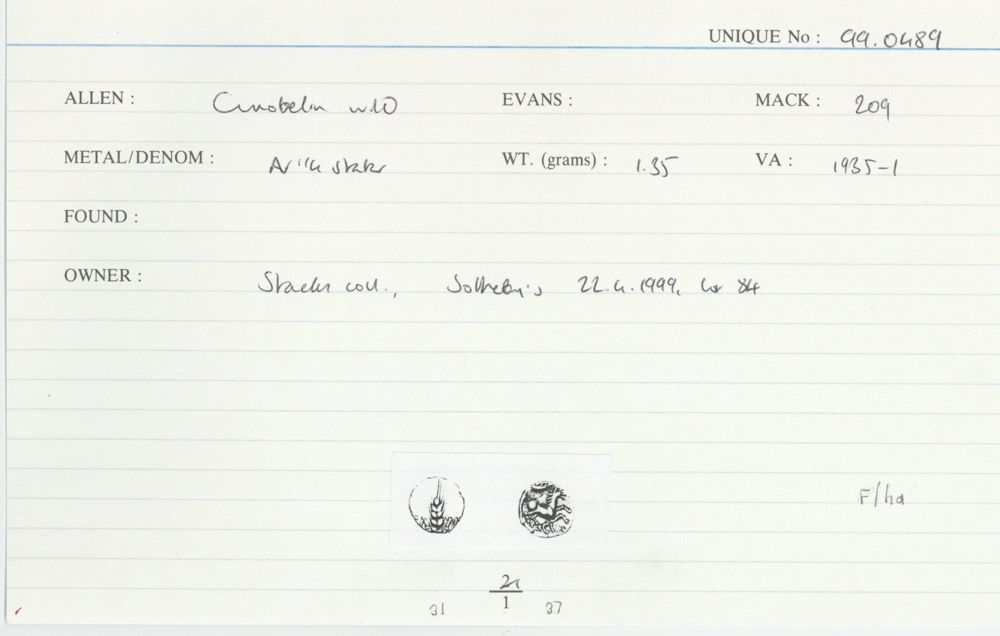 UNIQUE No : 99.0489
ALLEN : Cunobelin wild EVANS : MACK : 209
METAL/DENOM : AV 1/4 stater WT. (grams) : 1.35 VA : 1935-1
FOUND :
OWNER : coll., Sotheby's 22.4.1999, lot 84
F/ha
2
1
31 37